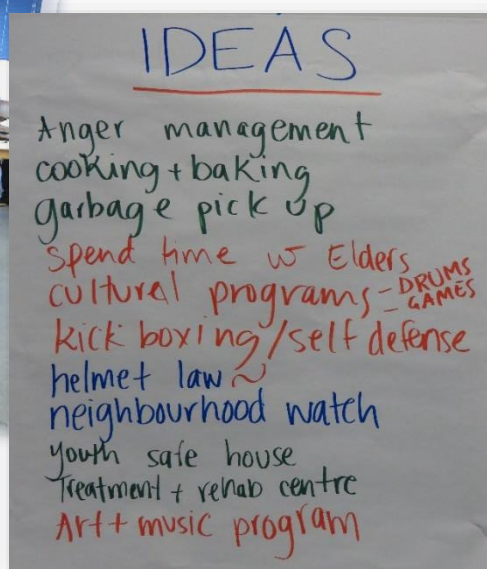 IDEAS
Anger management
cooking + baking
garbage pick up
spend time w Elders
cultural programs - DRUMS
- GAMES
kick boxing/self defense
helmet law ~
neighbourhood watch
youth safe house
Treatment + rehab centre
Art + music program